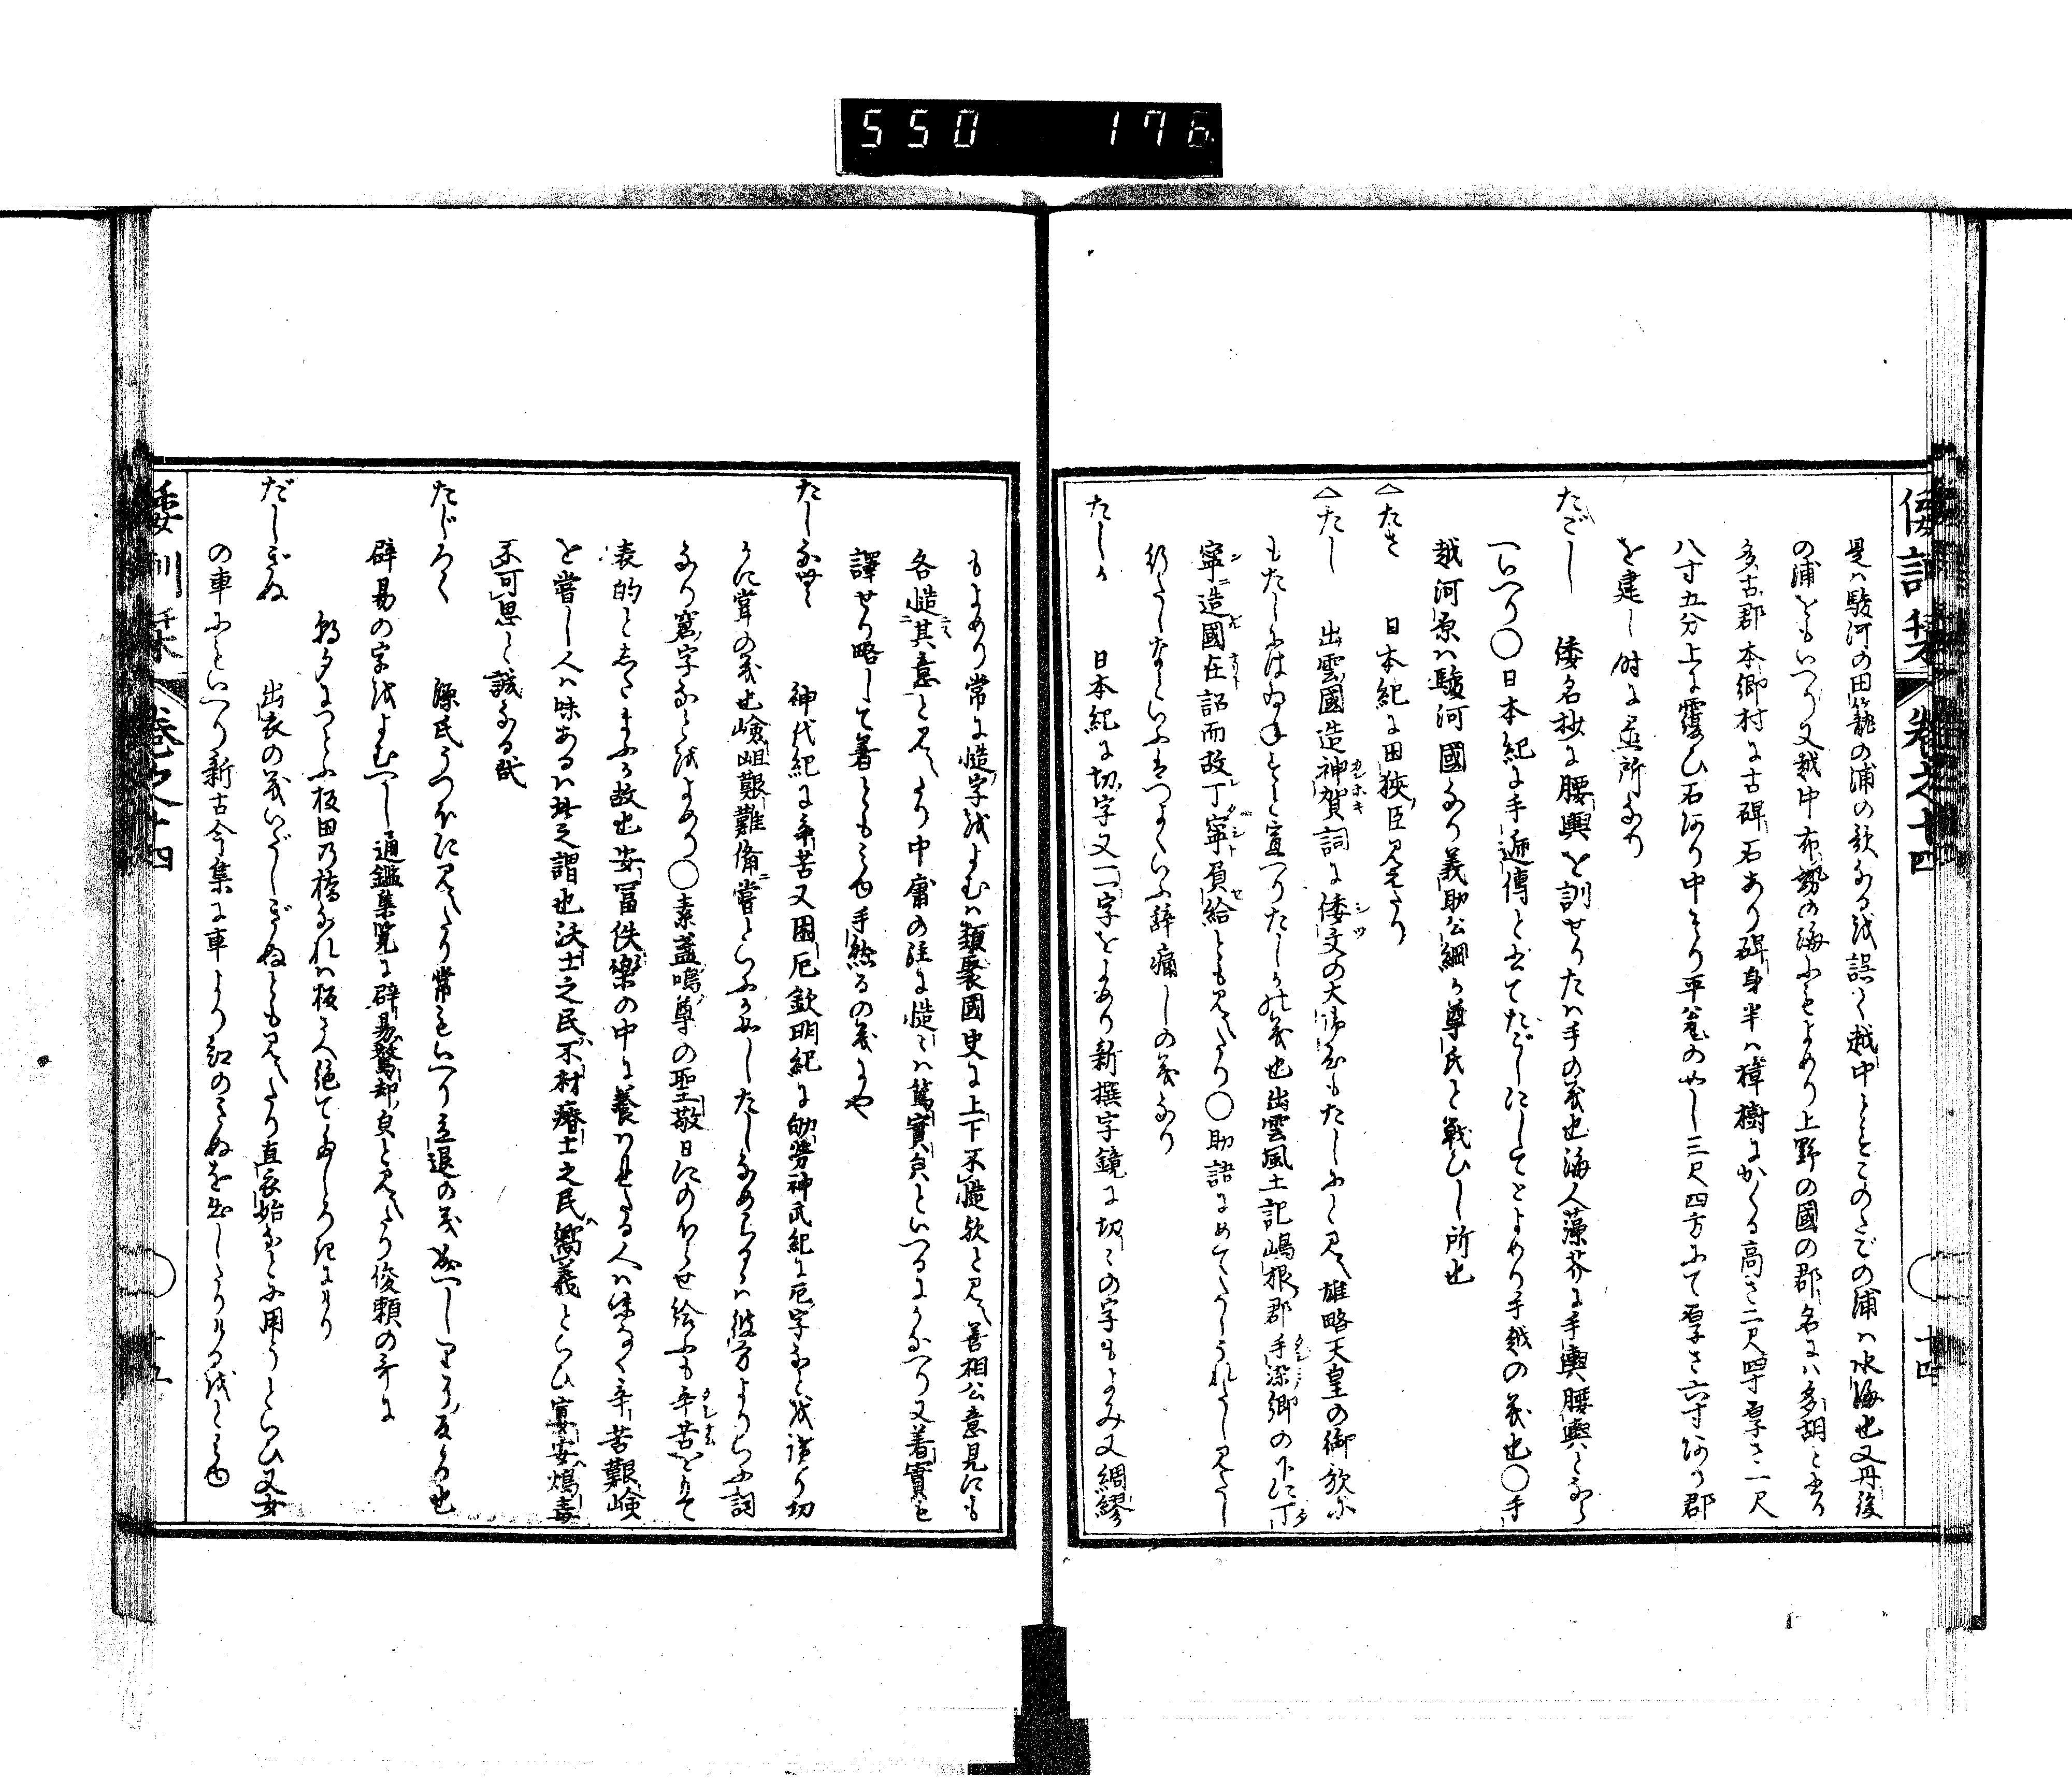 550 176
倭訓栞 巻之十四 十四
是は駿河の田籠の浦の歌なるを誤て越中とせりこのたごの浦は水海也又丹後
の浦をもいへり又越中布勢の海ふもとよめり上野の國の郡名には多胡と書り
多古郡本郷村に古碑石あり碑身半は樟樹にかくる高さ二尺四寸厚さ一尺
八寸五分上に覆ひ石あり中そり平瓮の如し三尺四方ふて厚さ六寸何の郡
を建し時に置所なり
たごし 倭名抄に腰輿を訓せりたは手の義也海人藻芥に手輿腰輿となら
へいへり〇日本紀に手逓傳と書てたごしにしてとよめり手越の義也〇手
越河原は駿河國なり義助公綱か尊氏と戦ひし所也
△たさ 日本紀に田狭臣見えたり
△たし 出雲國造神賀詞に倭文の大御心もたしふと見え雄略天皇の御歌に
もたしにはあ 宣へりたしかの義也出雲風土記嶋根郡手染郷の下に丁
寧造國在詔而改丁寧負給とも見えたり〇助語にめてたしうれたし見たし
行たしなといふはつよくいふ辞痛しの義なり
たしか 日本紀に切字又一字をよめり新撰字鏡に切々の字もよみ又綢繆
もよめり常に慥字をよむは類聚國史に上下不慥歟と見え善相公意見にも
各慥其意と見えたり中庸の註に慥々は篤實皃といへるにかなへり又着實も
譯せり略して着ともみゆ手繰るの義にや
たしなむ 神代紀に辛苦又困厄欽明紀に劬労神武紀に厄字などを讀り切
かに甞の義也嶮岨艱難備甞といふか如したしなめらるゝは彼方よりいふ詞
なり窘字などをよめり〇素盞嗚尊の聖敬日にのほらせ給ふも辛苦をもて
表的としたまふか故也安冨佚樂の中に養はれたる人は味なく辛苦艱嶮
を甞し人は味あるは此之謂也沃土之民不材瘠土之民嚮義といひ宴安鴆毒
不可思と誠なる哉
たじろく 源氏うつほに見えたり常もいへり立退の義なるへしりそ反ろ也
辟易の字をよむへし通鑑集覧に辟易驚却皃と見えたり俊頼の哥に
朝夕につたふ板田の橋なれは板さへ絶てたしろきにけり
だしぎぬ 出衣の義いだしぎぬとも見えたり直衣始なとに用うといひ又女
の車ふもいへり新古今集に車より紅のきぬを出したりけるをとみゆ
倭訓栞 巻之十四 十五